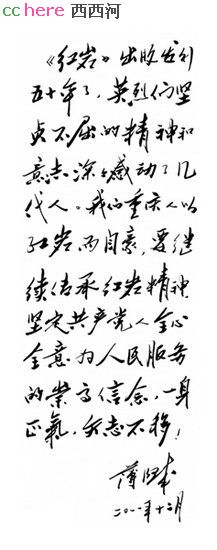 cchere 西西河
《红岩》出版发行
五十年了，英烈们坚
贞不屈的精神和
意志深深感动了几
代人。我们重庆人以
红岩而自豪，要继
续传承红岩精神，
坚定共产党人全心
全意为人民服务
的崇高信念，一身
正气，矢志不移！
薄熙来
二〇一一年十二月